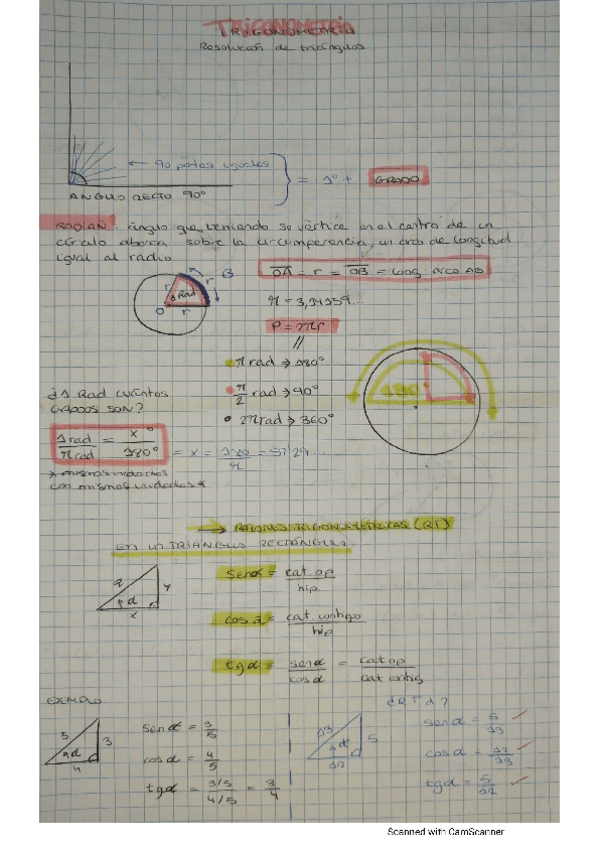 TRIGONOMETRIA
Resolución de triángulos
← 90 partes iguales
= 1° + GRADO
ANGULO RECTO 90°
RADIAN ángulo que teniendo su vértice en el centro de un
círculo abarca sobre la circumferencia, un arco de longitud
igual al radio
B
r
1 Rad
O r
OA = r = OB = long. arco AB
π = 3,14159...
P = 2πr
//
• π rad → 180°
• π/2 rad → 90°
• 2π rad → 360°
180°
¿1 Rad cuántos
GRADOS SON?
1 rad / π rad = x° / 180° = x = 180/π = 57'29...
* mismas unidades
con mismas unidades *
→ RAZONES TRIGONOMETRICAS (RT)
EN UN TRIÁNGULO RECTÁNGULO
a
y
α
x
sen α = cat op / hip.
cos α = cat. contiguo / hip
tg α = sen α / cos α = cat op / cat contig
EJEMPLO
5
3
α
4
sen α = 3/5
cos α = 4/5
tg α = 3/5 / 4/5 = 3/4
¿RT α?
13
5
α
12
sen α = 5/13 ✓
cos α = 12/13 ✓
tg α = 5/12 ✓
Scanned with CamScanner